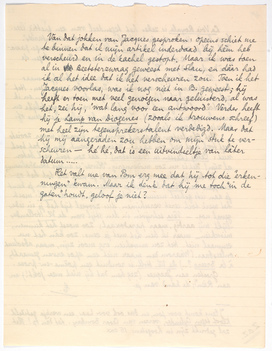 Van dat jokken van Jacques gesproken: opeens schiet me
te binnen dat ik mijn artikel inderdaad bij hem heb
verscheurd en in de kachel gestopt. Maar ik was toen
al in de zetsel geweest met Stan, en daar had
ik al het idee dat ik het verscheuren zou. Toen ik het
Jacques voorlas, was ik nog niet in B. geweest; hij
heeft er toen met veel genoegen naar geluisterd, al was
het, zei hij, "wat lang voor 'n antwoord". Verder heeft
hij je Lamp van Diogenes (zoals ik trouwens schreef)
met heel zijn tegensprekerstalent verdedigd. Maar dat
hij mij aangeraden zou hebben om mijn stuk te ver-
scheuren — hè hè, dat is een uitvindseltje van later
datum .....
Het valt me van Bom erg mee dat hij tot die "erken-
ningen" kwam. Maar ik denk dat hij me toch "in de
gaten" houdt, geloof je niet?